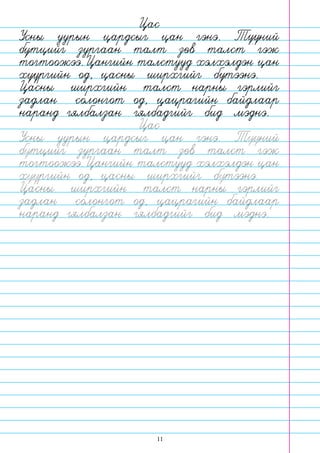 Цас
Усны уурын цардсыг цан гэнэ. Түүний
бүтцийг зургаан талт зөв талст гэж
тогтоожээ. Цангийн талстууд хэлхэлдэн цан
хуургийн од, цасны ширхгийг бүтээнэ.
Цасны ширхгийн талст нарны гэрлийг
задлан солонгот од, цацрагийн байдлаар
наранд гялбалзан гялбадгийг бид мэднэ.
Цас
Усны уурын цардсыг цан гэнэ. Түүний
бүтцийг зургаан талт зөв талст гэж
тогтоожээ. Цангийн талстууд хэлхэлдэн цан
хуургийн од, цасны ширхгийг бүтээнэ.
Цасны ширхгийн талст нарны гэрлийг
задлан солонгот од, цацрагийн байдлаар
наранд гялбалзан гялбадгийг бид мэднэ.
11